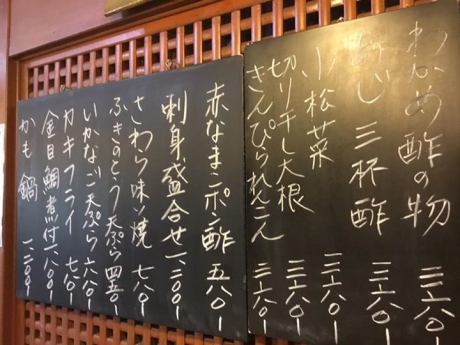 わかめ酢の物 三六〇ー
三杯酢 三六〇ー
小松菜 三六〇ー
切り干し大根 三六〇ー
きんぴられんこん 三六〇ー
赤なまこポン酢 五八〇ー
刺身盛合せ 一、三〇〇ー
さわら味ソ焼 七八〇ー
ふきのとう天ぷら 四五〇ー
いかなご天ぷら 六八〇ー
カキフライ 七八〇ー
金目鯛煮付 一、八〇〇ー
かも鍋 一、二〇〇ー